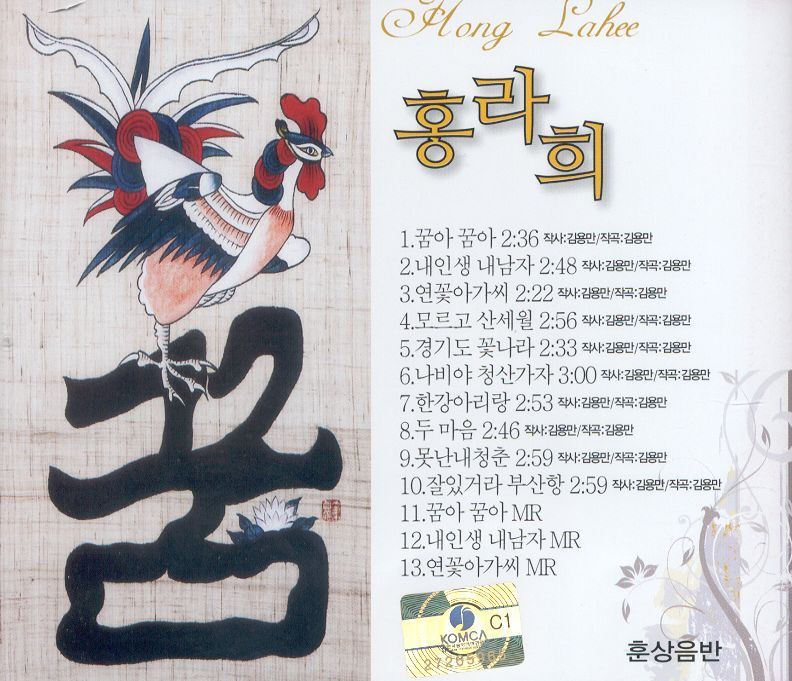 Hong Lahee
홍라희
1.꿈아 꿈아 2:36 작사:김용만/작곡:김용만
2.내인생 내남자 2:48 작사:김용만/작곡:김용만
3.연꽃아가씨 2:22 작사:김용만/작곡:김용만
4.모르고 산세월 2:56 작사:김용만/작곡:김용만
5.경기도 꽃나라 2:33 작사:김용만/작곡:김용만
6.나비야 청산가자 3:00 작사:김용만/작곡:김용만
7.한강아리랑 2:53 작사:김용만/작곡:김용만
8.두 마음 2:46 작사:김용만/작곡:김용만
9.못난내청춘 2:59 작사:김용만/작곡:김용만
10.잘있거라 부산항 2:59 작사:김용만/작곡:김용만
11.꿈아 꿈아 MR
12.내인생 내남자 MR
13.연꽃아가씨 MR
꿈
KOMCA
C1
훈상음반